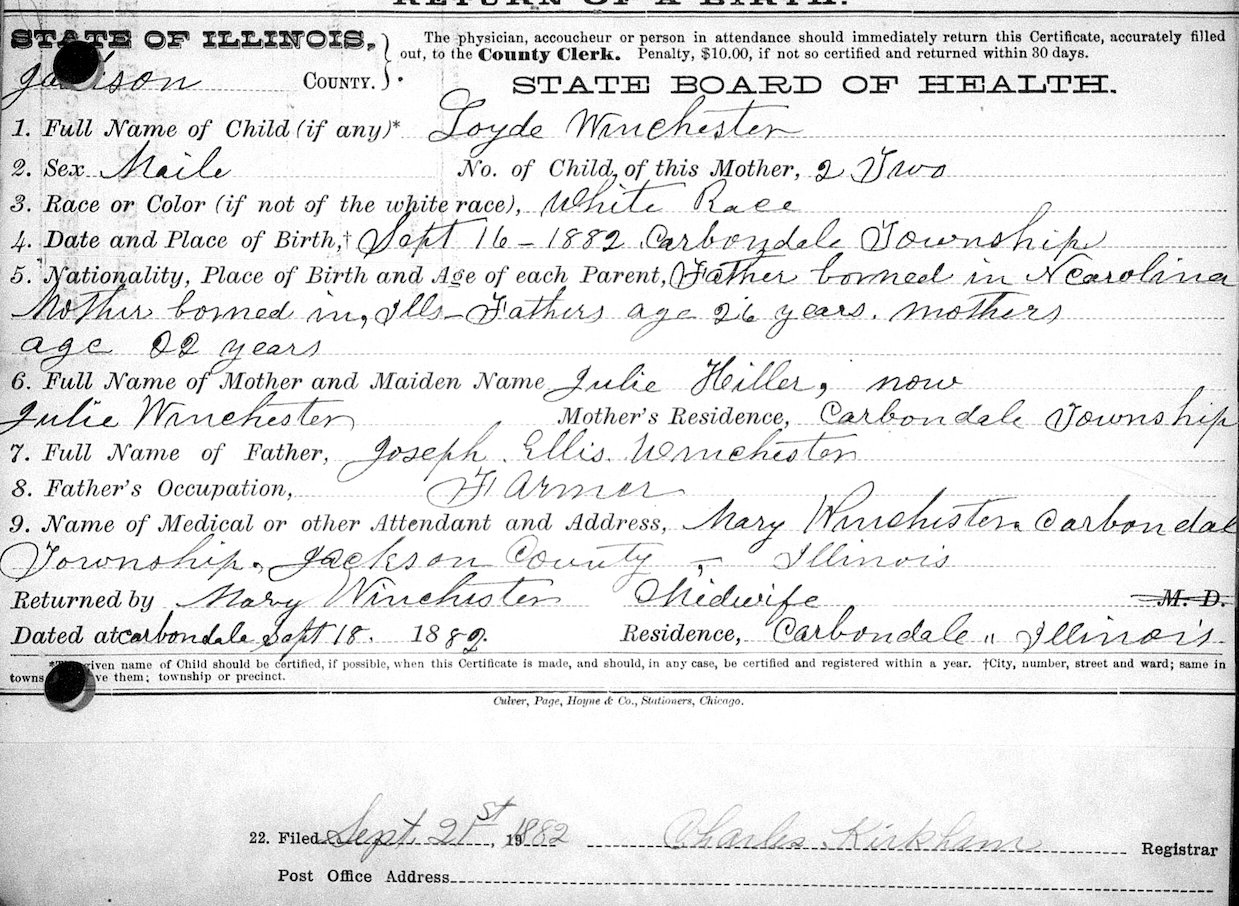 RETURN OF A BIRTH.
STATE OF ILLINOIS,
COUNTY.
The physician, accoucheur or person in attendance should immediately return this Certificate, accurately filled
out, to the County Clerk. Penalty, $10.00, if not so certified and returned within 30 days.
STATE BOARD OF HEALTH.
1. Full Name of Child (if any)* Loyde Winchester
2. Sex Maile No. of Child, of this Mother, 2 Two
3. Race or Color (if not of the white race), White Race
4. Date and Place of Birth,† Sept 16 - 1882 Carbondale Township
5. Nationality, Place of Birth and Age of each Parent, Father borned in N Carolina
Mother borned in, Ills - Fathers age 26 years. mothers
age 22 years
6. Full Name of Mother and Maiden Name Julie Hiller, now
Julie Winchester Mother's Residence, Carbondale Township
7. Full Name of Father, Joseph Ellis Winchester
8. Father's Occupation, Farmer
9. Name of Medical or other Attendant and Address, Mary Winchester Carbondale
Township, Jackson County - Illinois
Returned by Mary Winchester Midwife M. D.
Dated at carbondale Sept 18. 1882 Residence, Carbondale " Illinois
given name of Child should be certified, if possible, when this Certificate is made, and should, in any case, be certified and registered within a year. †City, number, street and ward; same in
towns ve them; township or precinct.
Culver, Page, Hoyne & Co., Stationers, Chicago.
22. Filed Sept. 21st, 19 1882 Charles Kirkham Registrar
Post Office Address